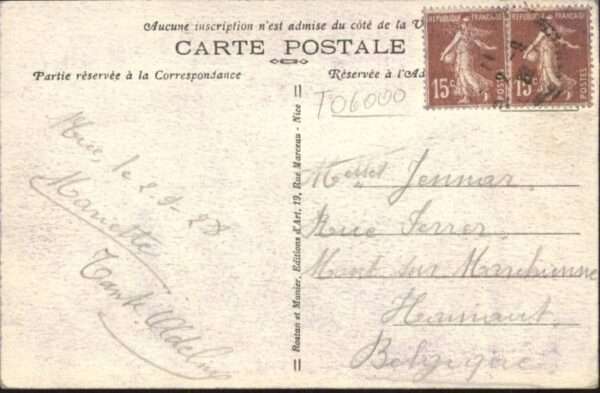 Aucune inscription n'est admise du côté de la V
CARTE POSTALE
Partie réservée à la Correspondance
Réservée à l'Ad
REPUBLIQUE FRANÇAISE
15c
POSTES
REPUBLIQUE FRANÇAISE
15c
POSTES
TO6000
Nice, le 2-9-28
Mariette
Tante Adeline
Rostan et Munier, Editions d'Art, 19, Rue Marceau - Nice
Jennar
Rue Ferrer
Mont sur Marchienne
Hainaut
Belgique